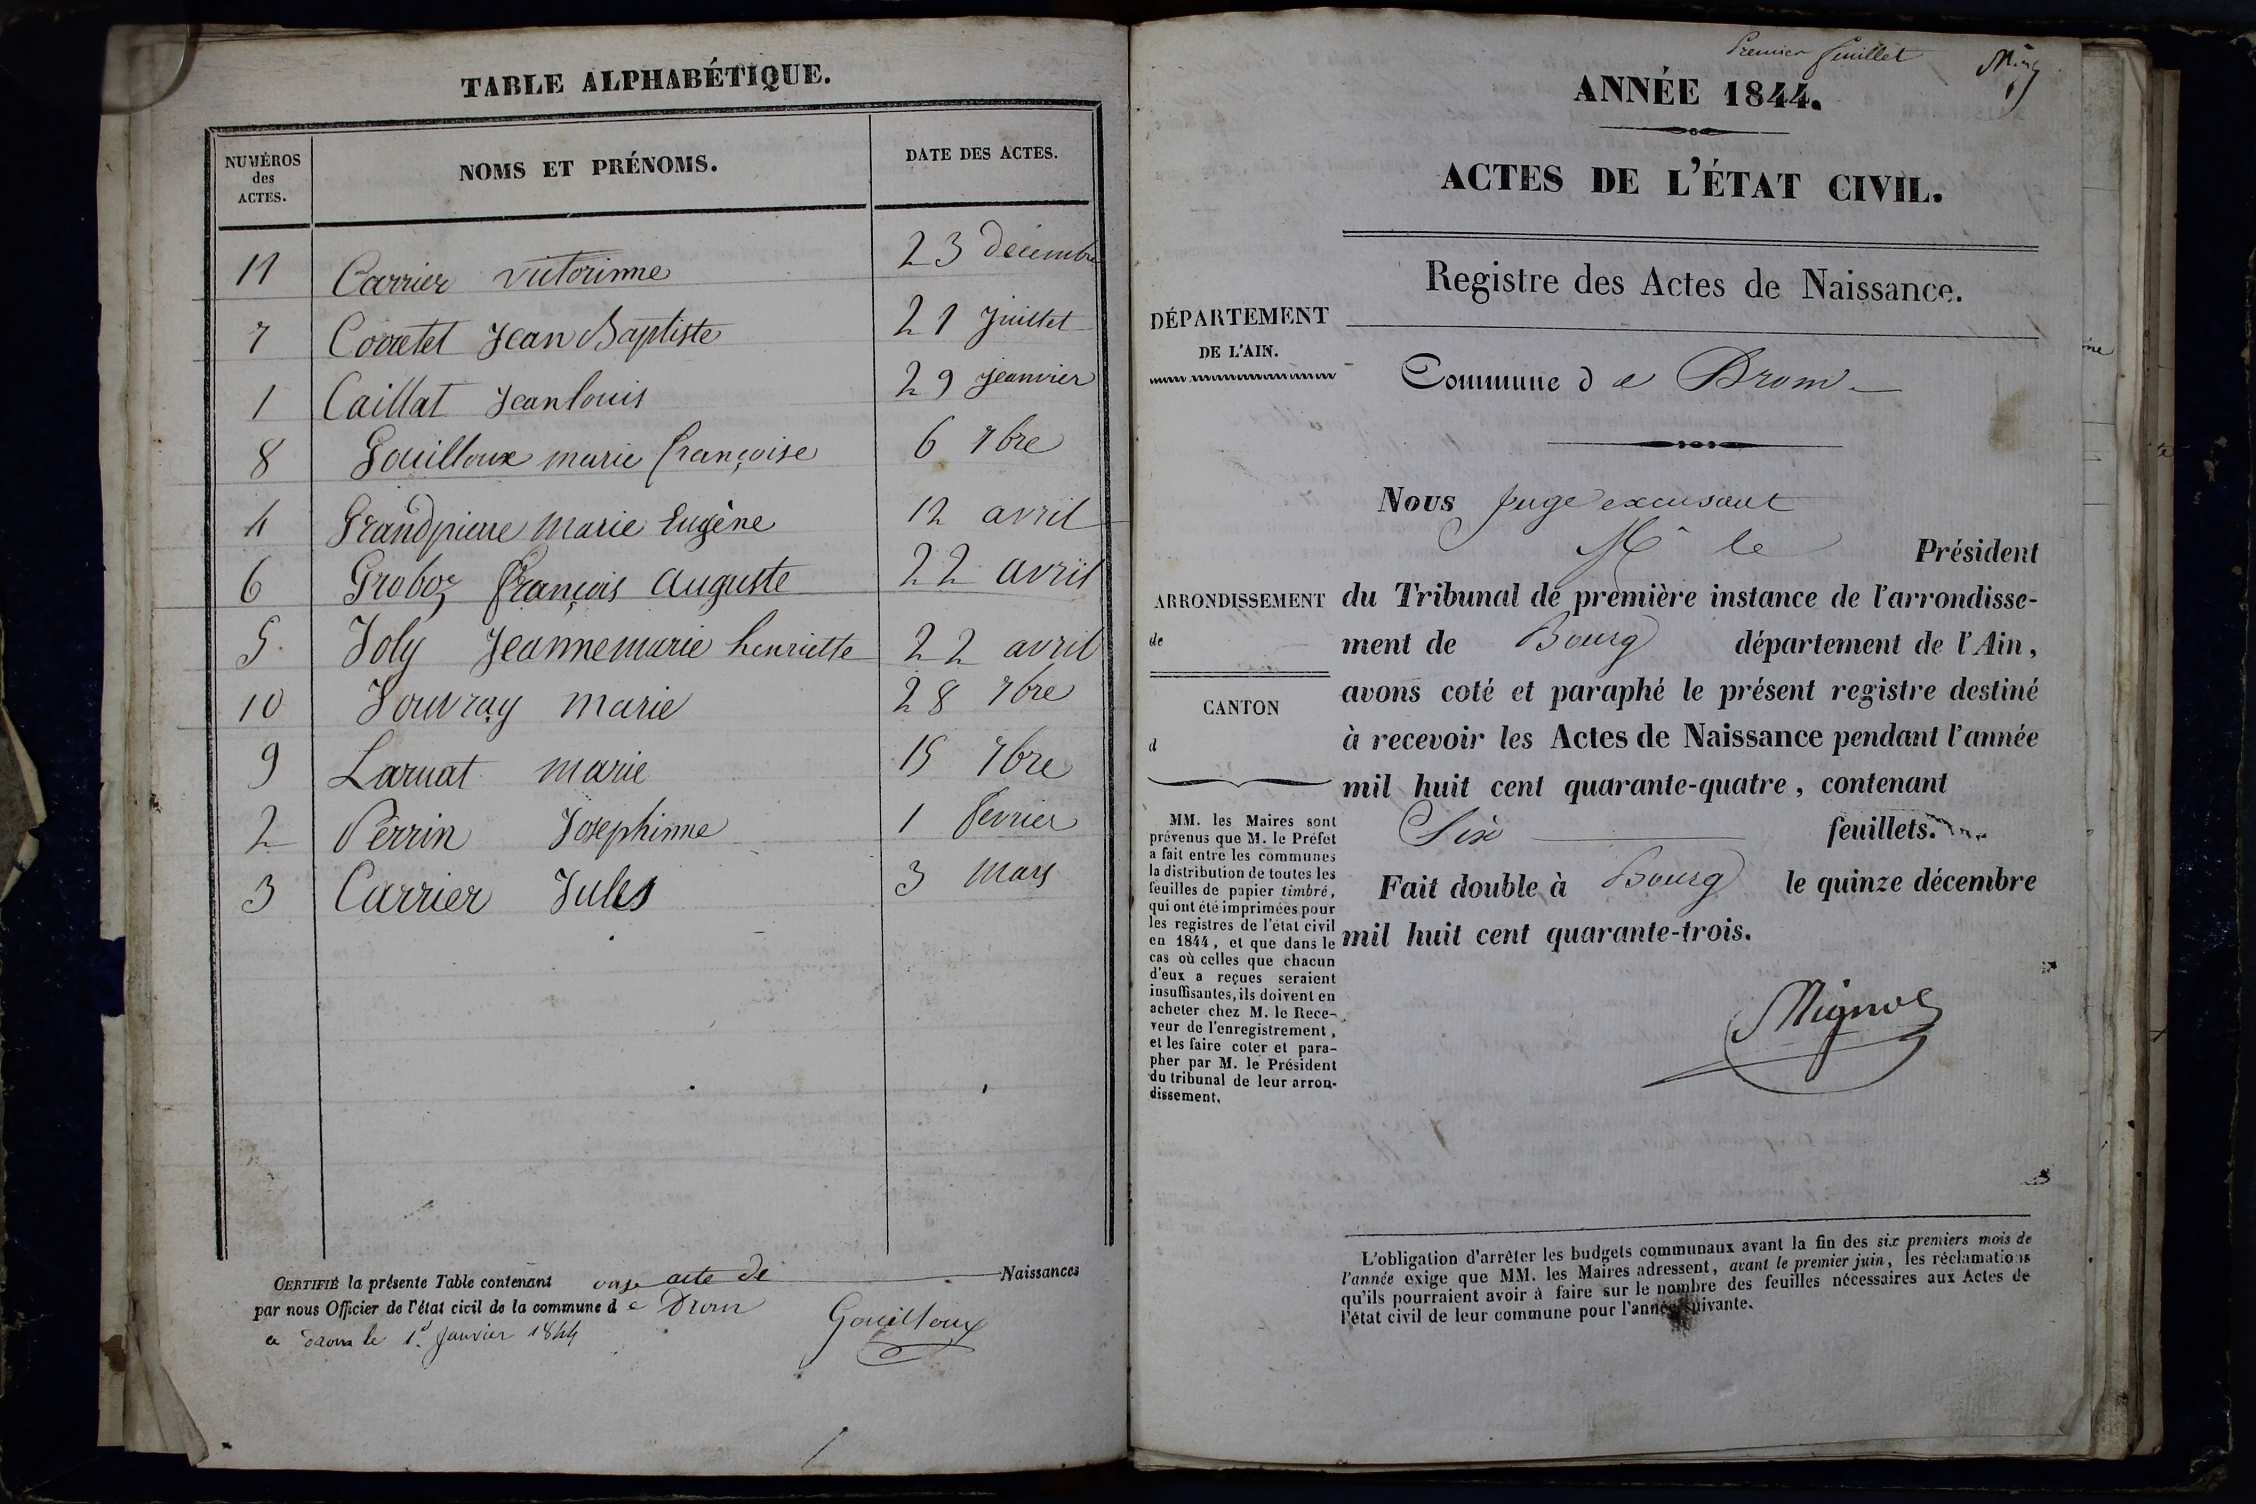 TABLE ALPHABÉTIQUE.
NUMÉROS des ACTES.
NOMS ET PRÉNOMS.
DATE DES ACTES.
11 Carrier victorinne 23 décembre
7 Corretet Jean Baptiste 21 Juillet
1 Caillat Jean louis 29 jeanvier
8 Gouilloux marie françoise 6 7bre
4 Grandpierre marie Eugène 12 avril
6 Groboz françois auguste 22 avril
5 Joly Jeanne marie henriette 22 avril
10 Jouvray marie 28 7bre
9 Laruat marie 15 7bre
2 Perrin Josephinne 1 fevrier
3 Carrier Jules 3 mars
CERTIFIÉ la présente Table contenant onze acte de Naissances
par nous Officier de l'état civil de la commune d e Drom
a drom le 1d. janvier 1844
Gouilloux
Premier feuillet
ANNÉE 1844.
ACTES DE L'ÉTAT CIVIL.
Registre des Actes de Naissance.
DÉPARTEMENT
DE L'AIN.
Commune d e Drom
ARRONDISSEMENT
de
CANTON
d
MM. les Maires sont
prévenus que M. le Préfet
a fait entre les communes
la distribution de toutes les
feuilles de papier timbré,
qui ont été imprimées pour
les registres de l'état civil
en 1844, et que dans le
cas où celles que chacun
d'eux a reçues seraient
insuffisantes, ils doivent en
acheter chez M. le Rece-
veur de l'enregistrement,
et les faire coter et para-
pher par M. le Président
du tribunal de leur arron-
dissement.
Nous Juge excusant
Mr le Président
du Tribunal de première instance de l'arrondisse-
ment de Bourg département de l'Ain,
avons coté et paraphé le présent registre destiné
à recevoir les Actes de Naissance pendant l'année
mil huit cent quarante-quatre, contenant
Six feuillets.
Fait double à Bourg le quinze décembre
mil huit cent quarante-trois.
L'obligation d'arrêter les budgets communaux avant la fin des six premiers mois de
l'année exige que MM. les Maires adressent, avant le premier juin, les réclamations
qu'ils pourraient avoir à faire sur le nombre des feuilles nécessaires aux Actes de
l'état civil de leur commune pour l'année suivante.